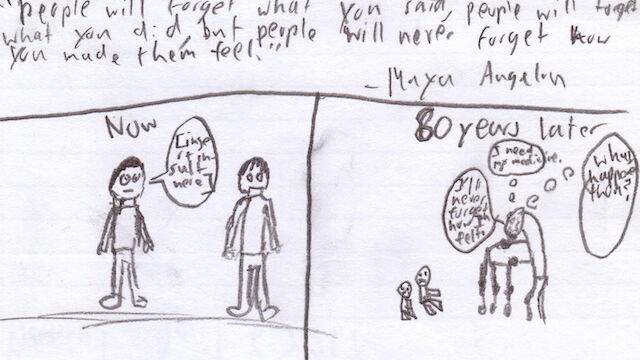 "people will forget what you said, people will forget
what you did, but people will never forget how
you made them feel."
- Maya Angelou
Now
[inse
rt in-
sult
here]
80 years later
I need
my medicine.
I'll
never
forget
how
felt.
What
happened